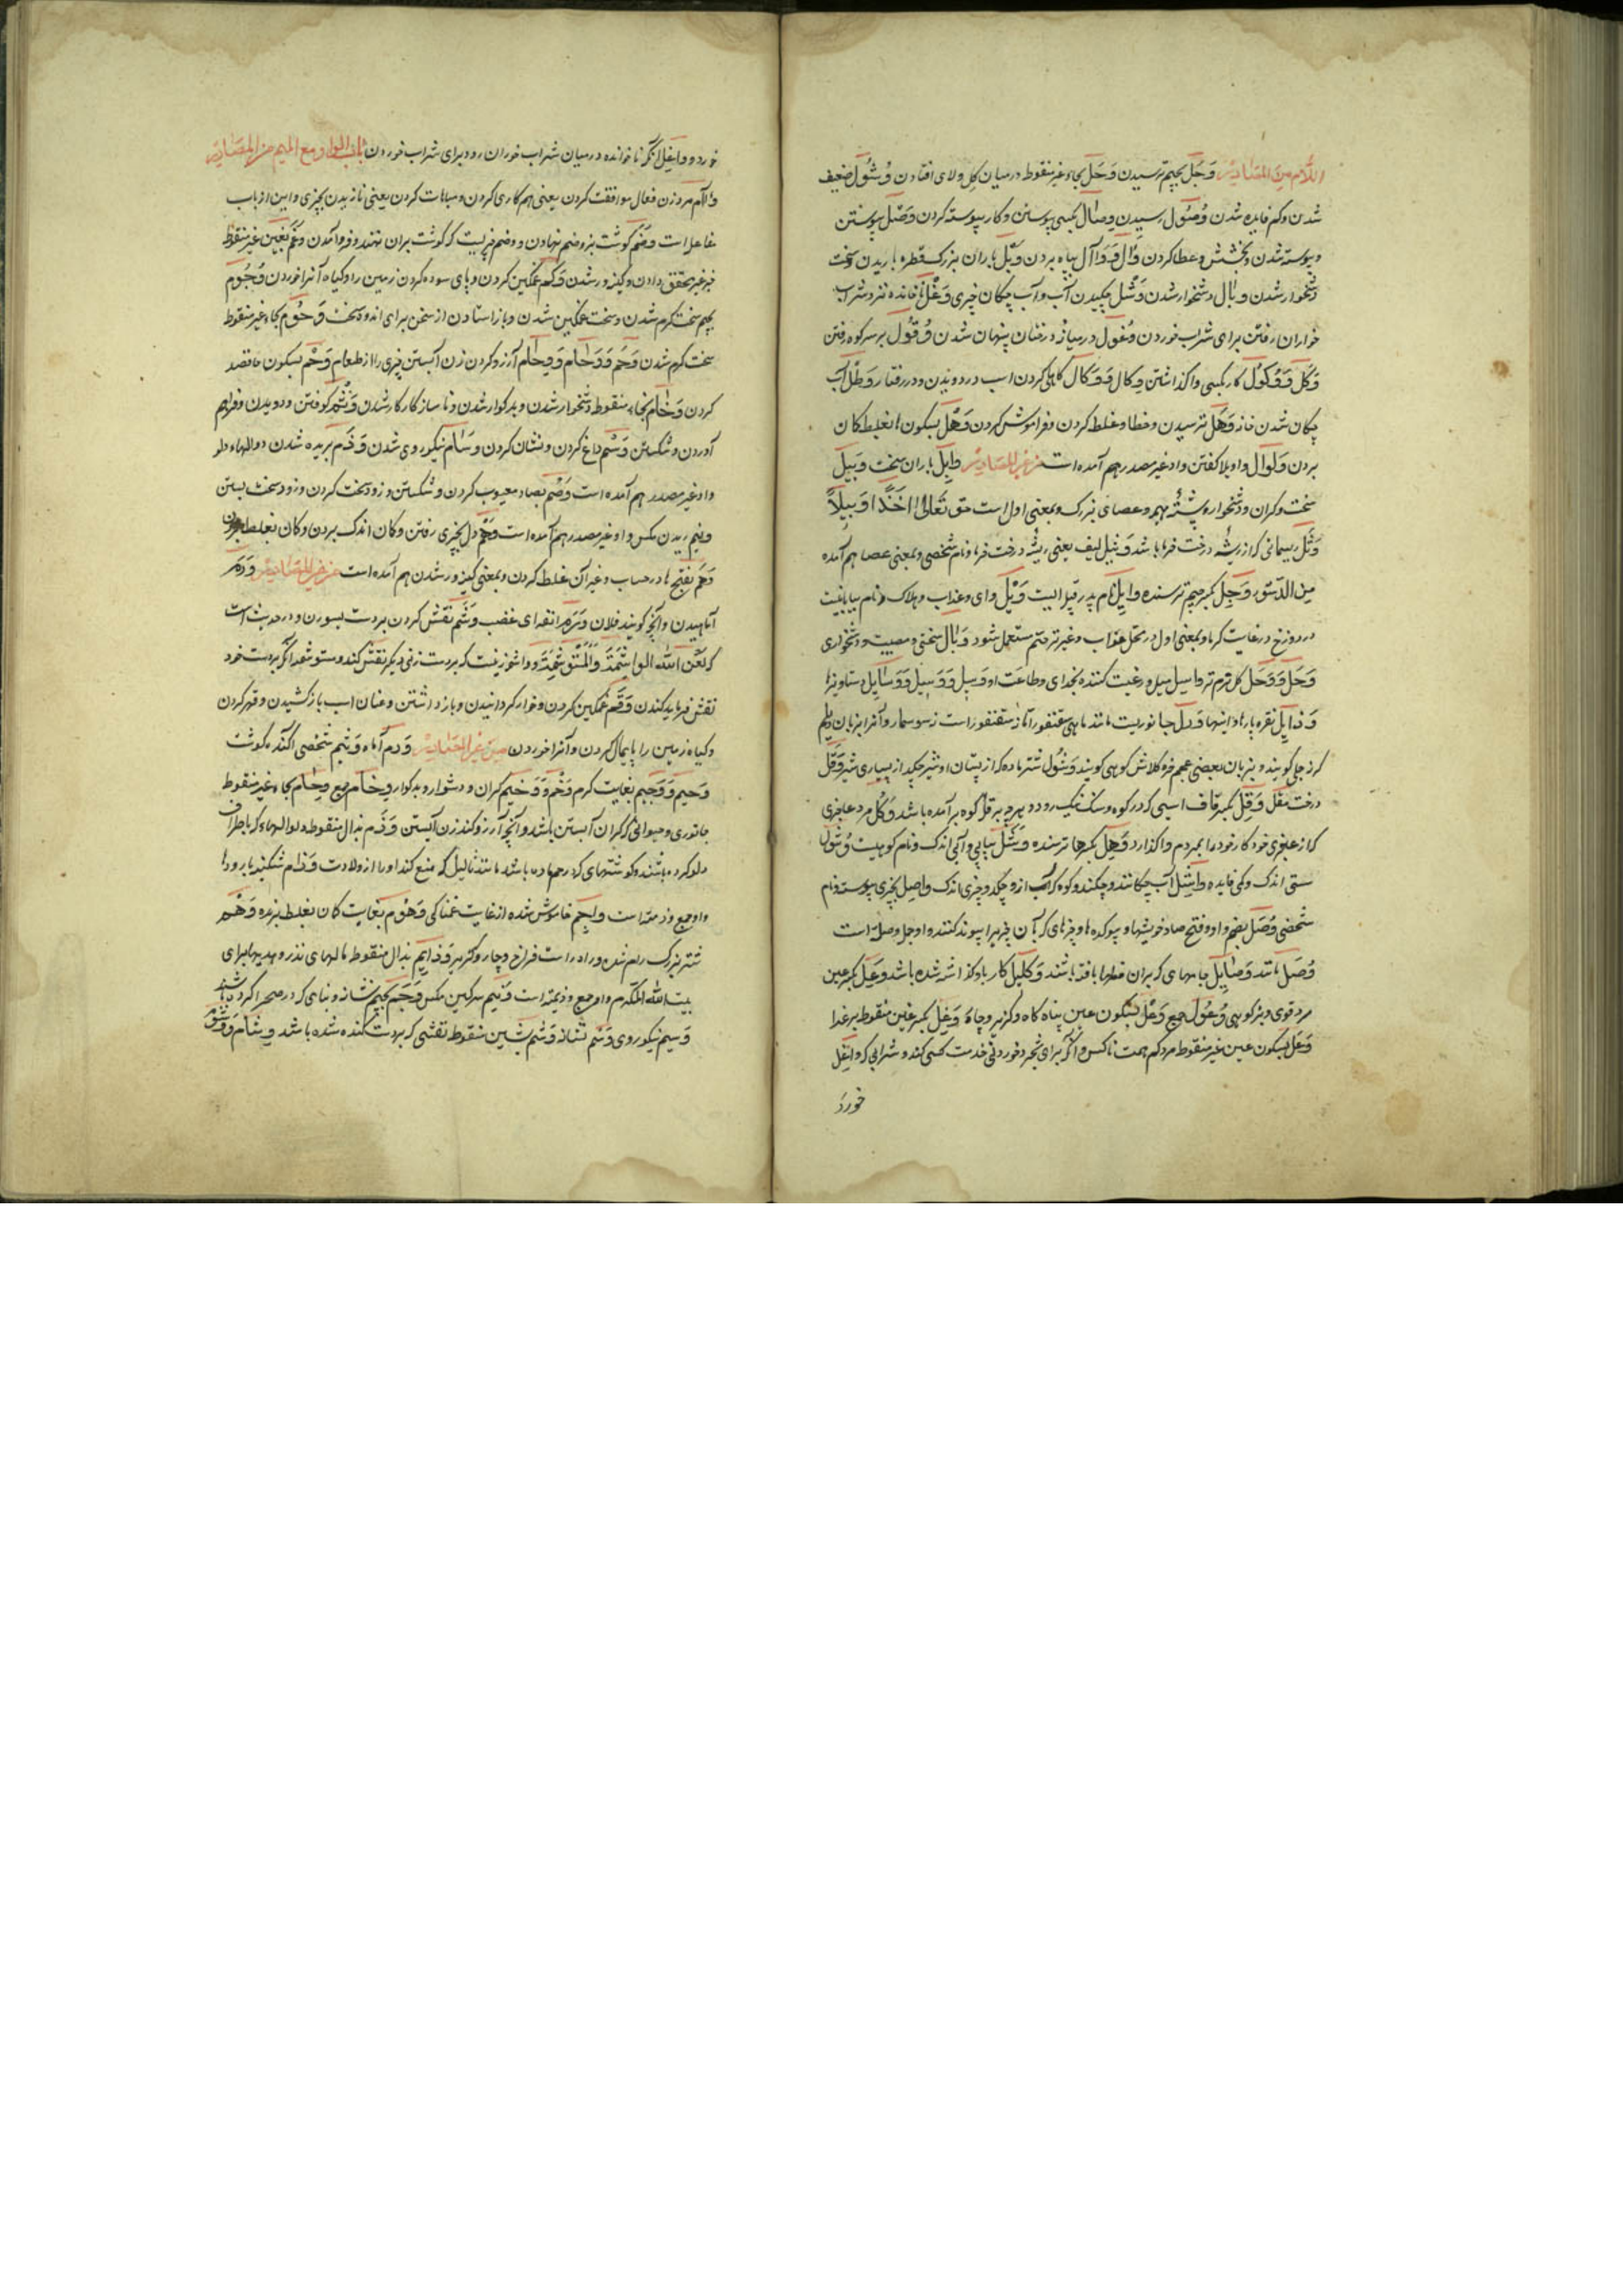 اللام من المصادر وَجَل بجیم ترسیدن وَحَل بحاء غیر منقوط در میان کل و لای افتادن وُشُول ضعیف
شدن و کم فایده شدن وُصُول رسیدن وِصال بکسی پیوستن و کار پیوسته کردن وَصل پیوستن
و پیوسته شدن و بخشش و عطا کردن وَأل وَ وَوْاآل پناه بردن وَبل باران بزرک قطره باریدن و سخت
دشخوار شدن وبال دشخوار شدن وَشل چکیدن آب و آب چکان چیزی وَغل ناخوانده نزد شراب
خواران رفتن برای شراب خوردن وُغول در میانه درختان پنهان شدن وُقُول بر سر کوه رفتن
وَکل وَ وُکول کار بکسی واکذاشتن وِکال وَ وَکال کاهلی کردن اسب در دویدن و در رفتار وَطل آب
چکان شدن خانه وَهَل ترسیدن و خطا و غلط کردن و فراموش کردن وَهل بسکون ها بغلط کمان
بردن وَلوال واویلا کفتن و او غیر مصدر هم آمده است من غیر المصادر وابل باران سخت وَبیل
سخت و کران و دشخوار و پشته هیمه و عصای بزرک و بمعنی اول است حق تعالی اَخذًا وَبیلاً
وَثل ریسمانی که از ریشه درخت خرما باشد وَثیل لیف یعنی ریشه درخت خرما و نام شخصی و بمعنی عصا هم آمده
من الدستور وَجِل بکسر جیم ترسنده وایل نام پدر قبیله ایست وَیل وای و عذاب و هلاک و نام بیابانیست
در دوزخ در غایت کرما و بمعنی اول در محل عذاب و غیر ترحم مستعمل شود وَبال سختی و مصیبت و دشخواری
وَحَل وَ وَحل کل نرم تر واسل میل و رغبت کننده بخدای و طاعت او وَسیل وَ وَسایل دستاویزها
وَذایل نقره پارها و اینها وَرل جانوریست مانند ماهی سقنقور اما نه سقنقور است نه سوسمار و آنرا بزبان دیلم
درخت مقل وَقِل بکسر قاف اسبی که در کوه و سنک نیک رود و هرچه بر قله کوه بر آمده باشد وَکل مرد عاجزی
که از عجزی خود کار خود را بمردم واکذارد وَهِل بکسر ها ترسنده وَشل بیابی و آبی اندک و نام کوهیست وُشول
سستی اندک و کمی فایده واشل آب چکاننده و چکنده و کوه که آب از و چکد و چیزی اندک واصل بچیزی پیوسته و نام
شخصی وُصَل بضم واو و فتح صاد خویشیها و پیوندها و چیزهای که بآن چیزیرا پیوند کنند و او جمع وصله است
وُصَل مانند وَصایل جامهای که بران خطها بافته باشند وَکیل کار باو کذاشته شده باشد وَعِل بکسر عین
مرد قوی و بز کوهی وُعُول جمع وَعل بسکون عین پناه کاه و کزیر و چاره وَغِل بکسر غین منقوط بد غذا
وَغل بسکون عین غیر منقوط مرد کم همت ناکس و آنکه برای مجرد خوردنی خدمت کسی کند و شرابی که واغل
خورد
خورد و واغل آنکه ناخوانده در میان شراب خوران رود برای شراب خوردن باب الواو مع المیم من المصادر
وِاآم مر وزن فعال موافقت کردن یعنی هم کاری کردن و مباهات کردن یعنی نازیدن بچیزی و این از باب
مفاعله است وَضم کوشت بر وضم نهادن و وضم چیزیست که کوشت بران نهند و فرو آمدن وَغم بغین غیر منقوط
خبر غیر محقق دادن و کینه ور شدن وَکم غمکین کردن و پای سوده کردن زمین را و کیاه آنرا خوردن وُجُوم
بجیم سخت کرم شدن و سخت غمکین شدن و باز استادن از سخن برای اندوه سخت وَحُوم بحاء غیر منقوط
سخت کرم شدن وَحَم وَ وَحام وَ وِحام آرزو کردن زن آبستن چیزی را از طعام وَحم بسکون حا قصد
کردن وَخام بخاء منقوط دشخوار شدن و بد کوار شدن و ناساز کار شدن وَثم کوفتن و دویدن و فراهم
آوردن و شکستن وَسم داغ کردن و نشان کردن وَسام نیکو روی شدن وَذَم بریده شدن دوالهاء دلو
و او غیر مصدر هم آمده است وَصم بصاد معیوب کردن و شکستن و زود سخت کردن و زود سخت بستن
وَنیم ریدن مکس و او غیر مصدر هم آمده است وَهم دل بچیزی رفتن و کمان اندک بردن و کمان بغلط بردن
وَهَم بفتح ها در حساب و غیر آن غلط کردن و بمعنی کینه ور شدن هم آمده است من غیر المصادر وَرَم
آماهیدن و آنچه کویند فلان وَرَم انفه ای غضب وَشم نقش کردن بر دست بسوزن و در حدیث است
که لعن الله الواشمة والمستوشمة و واشمه زنیست که بر دست زنی دیکر نقش کند و مستوشمه آنکه بر دست خود
نقش فرماید کندن وَقم غمکین کردن و خوار کردانیدن و باز داشتن و عنان اسب باز کشیدن و قهر کردن
و کیاه زمین را پایمال کردن و آنرا خوردن من غیر المصادر وَرم آماه وَثیم شخصی آکنده کوشت
وَحیم وَ وَجیم بغایت کرم وَخم وَ وَخیم کران و دشوار و بد کوار وِخام جمع وِحام بحاء غیر منقوط
جانوری و حیوانی که کران آبستن باشد و آنچه آرزو کند زن آبستن وَذَم بذال منقوط دوالهاء که باطراف
دلو کرده باشند و کوشتهای که در رحم ماده باشد مانند ثالیل که منع کند او را از ولادت
و او جمع وذمه است واجم خاموش شده از غایت غمناکی وَهُوم بغایت کمان بغلط برنده وَهم
شتر بزرک رام شده و راه راست فراخ وَذایم بذال منقوط مالهای نذر و هدیهای برای
بیت الله المکرم و او جمع وذیمه است وَنیم سرکین مکس وَجَم بجیم نشانه و بنایی که در صحرا کرده باشند
وَسیم نیکو روی وَسم نشانه وَشم بشین منقوط نقشی که بر دست کنده شده باشد وِشام وَ وُشُوم